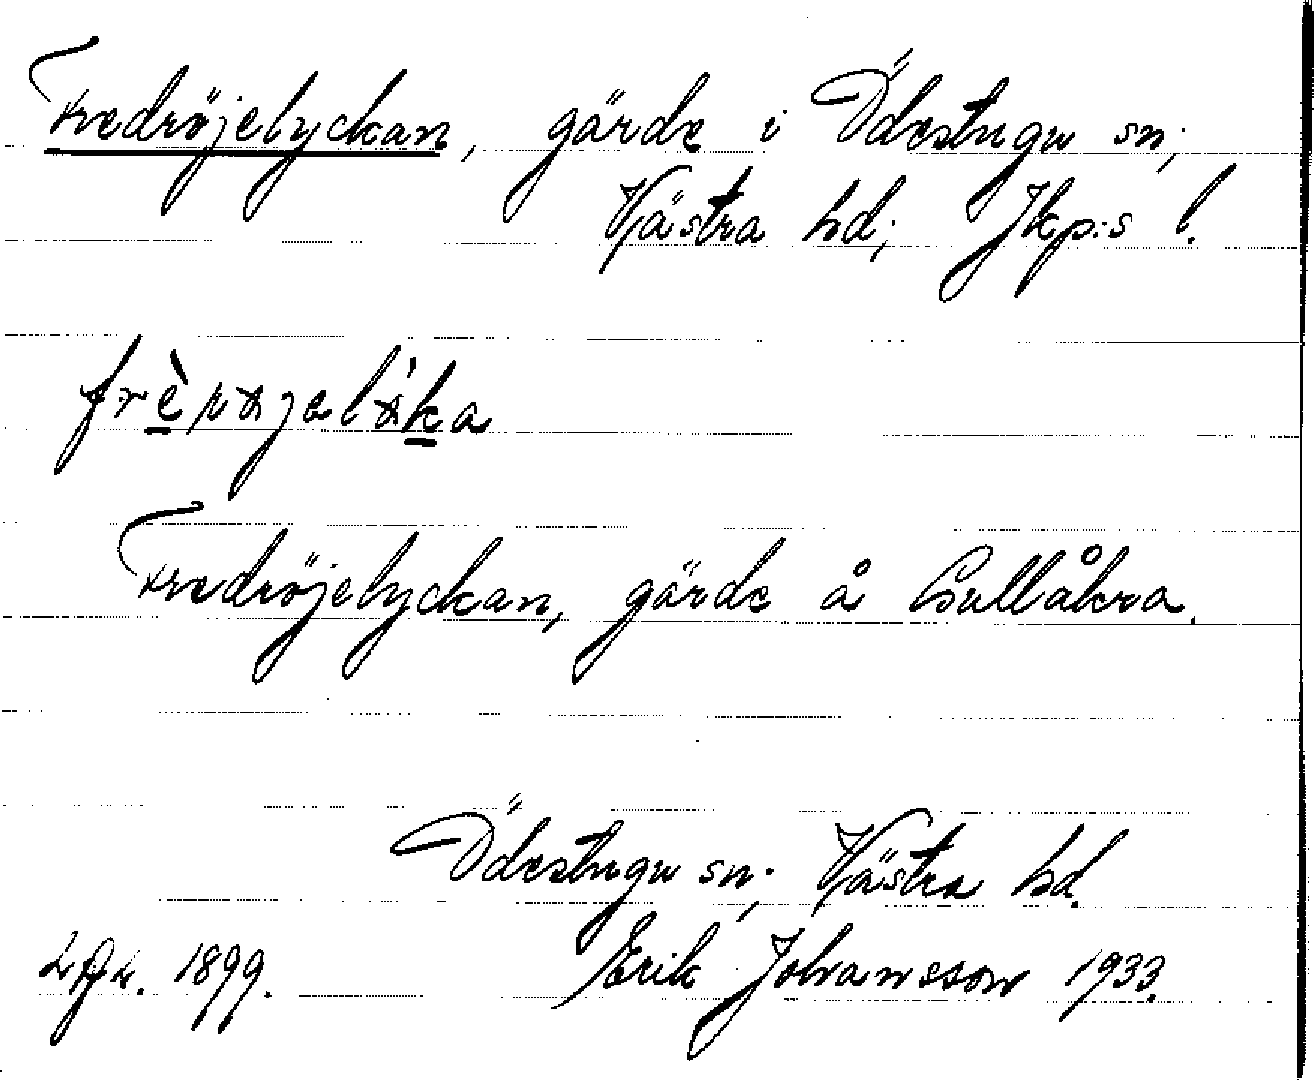 Fredröjelyckan, gärde i Ödestugu sn;
Västra hd; Jkp:s l.
Fredröjelyckan, gärde å Gullåkra.
Ödestugu sn; Västra hd.
1899. Erik Johansson 1933.